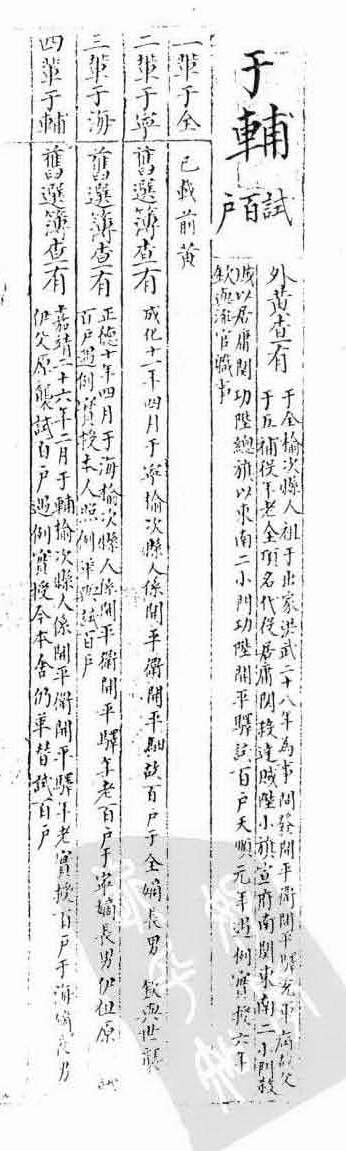 于輔
試百戶
外黃查有
于全榆次縣人祖于出家洪武二十八年為事問發開平衛開平驛充軍病故父
于五補役年老全頂名代役居庸關殺達賊陞小旗宣府南關東南二小門殺
賊以居庸關功陞總旗以東南二小門功陞開平驛試百戶天順元年遇例實授六年
欽與流官職事
一輩于全
已載前黃
二輩于寧
舊選簿查有
成化十二年四月于寧榆次縣人係開平衛開平驛故百戶于全嫡長男 欽與世襲
三輩于海
舊選簿查有
正德十年四月于海榆次縣人係開平衛開平驛年老百戶于寧嫡長男伊祖原試
百戶遇例實授本人照例革與試百戶
四輩于輔
舊選簿查有
嘉靖二十六年二月于輔榆次縣人係開平衛開平驛年老實授百戶于海嫡長男
伊父原襲試百戶遇例實授今本舍仍革替試百戶